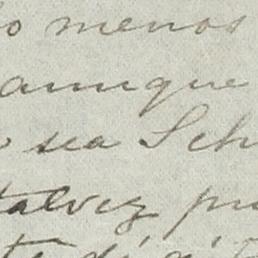 menos
aunque
sea Sch
talvez pu